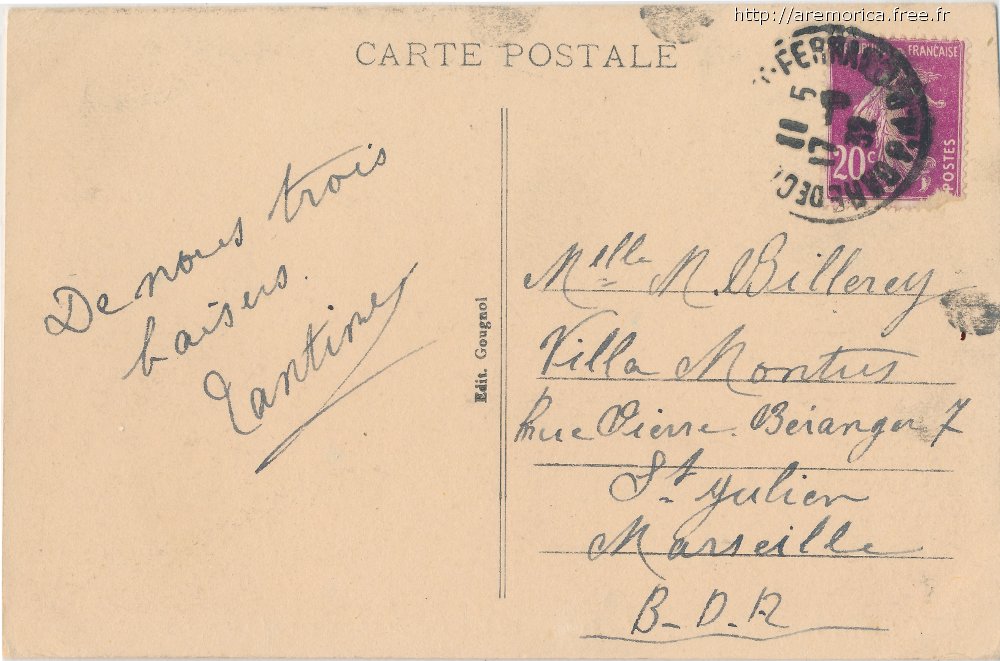 http://aremorica.free.fr
CARTE POSTALE
FRANÇAISE
20c
POSTES
11 5
17
32
De nous trois
baisers.
Tantine
Edit. Gougnol
Melle M. Billerey
Villa Montus
Rue Pierre Béranger 7
St Julien
Marseille
B-D-R